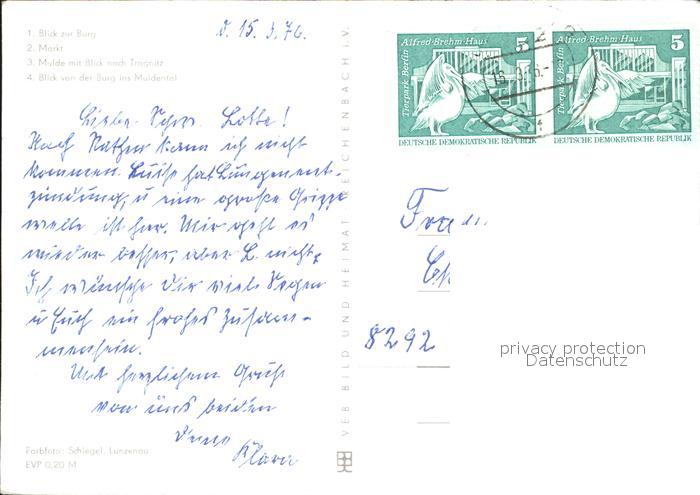 1. Blick zur Burg
2. Markt
3. Mulde mit Blick nach Tragnitz
4. Blick von der Burg ins Muldental
d. 15. 3. 76.
Liebe Schw. Lotte!
Nach Rathen kann ich nicht
kommen. Luise hat Lungenent-
zündung, u eine große Grippe
welle ist hier. Mir geht es
wieder besser, aber L. nicht.
Ich wünsche Dir viel Segen
u Euch ein frohes Zusam-
mensein.
Mit herzlichem Gruß
von uns beiden
Deine
Klara
Farbfoto: Schlegel, Lunzenau
EVP 0,20 M
VEB BILD UND HEIMAT REICHENBACH i. V.
Alfred-Brehm-Haus 5
Tierpark Berlin
DEUTSCHE DEMOKRATISCHE REPUBLIK
Alfred-Brehm-Haus 5
Tierpark Berlin
DEUTSCHE DEMOKRATISCHE REPUBLIK
Frau
8292
privacy protection
Datenschutz